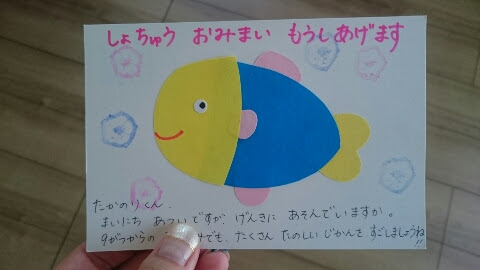 しょちゅう おみまい もうしあげます
たかのりくん、
まいにち あついですが げんきに あそんでいますか。
9がつからの でも、たくさん たのしい じかんを すごしましょうね!!